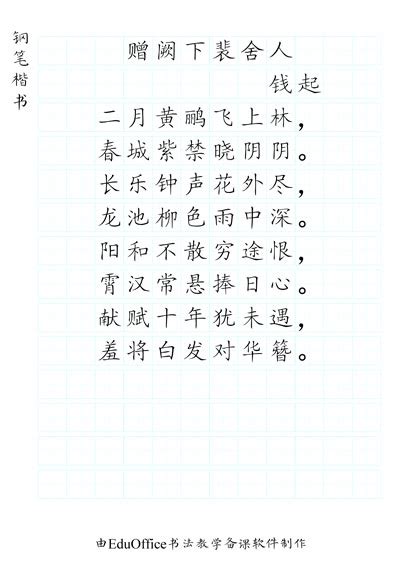 钢笔楷书
赠阙下裴舍人
钱起
二月黄鹂飞上林，
春城紫禁晓阴阴。
长乐钟声花外尽，
龙池柳色雨中深。
阳和不散穷途恨，
霄汉常悬捧日心。
献赋十年犹未遇，
羞将白发对华簪。
由EduOffice书法教学备课软件制作